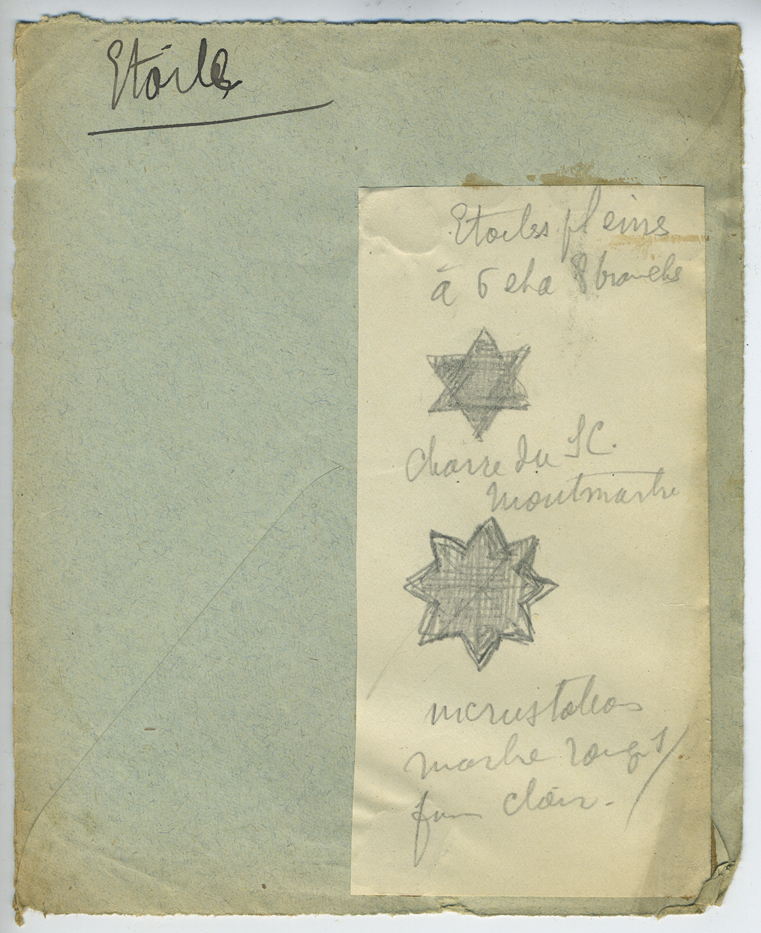 Etoile
Etoiles pleins
à 6 et a 8 branches
du SC.
Montmartre
incrustation
marbre rouge /
clair.